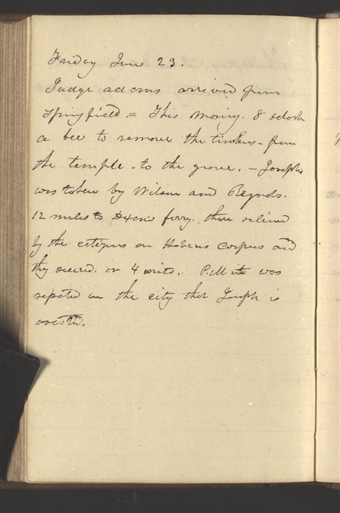 Friday June 23.
Judge adams arrived from
Springfield = This morning. 8 oclock
a bee to remove the timbers. from
the temple. to the grove. – Joseph
was taken by Wilson and Reynolds.
12 miles to Dixons ferry. then relieved
by the citizens on Habeus corpus and
they secured. or 4 writs. P.M. it was
repoted in the city that Joseph is
arested.